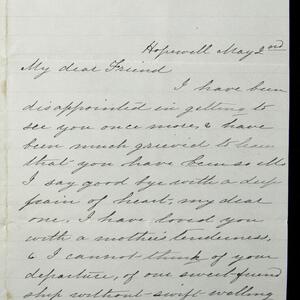 Hopewell May 2nd
My dear Friend
I have been
disappointed in getting to
see you once more, & have
been much grieved to learn
that you have been so ill.
I say good bye with a deep
pain of heart, my dear
one. I have loved you
with a mother's tenderness,
& I cannot think of your
departure, of our sweet friend
ship without swift welling